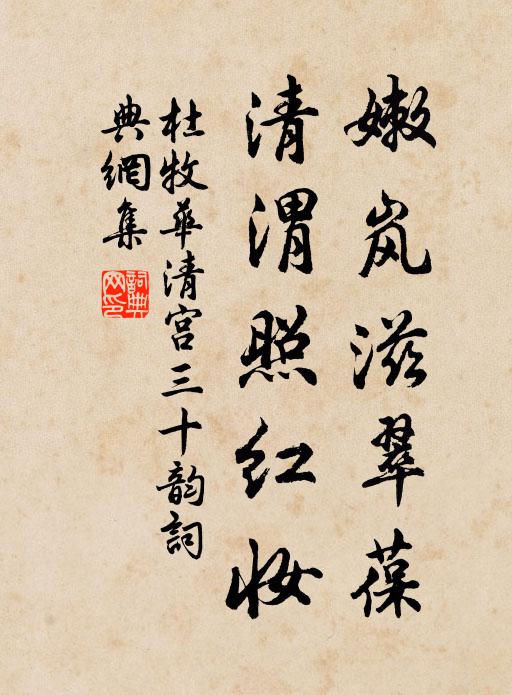 嫩岚滋翠葆
清渭照红妆
杜牧華清宫三十韵詞
典網集
詞典网印